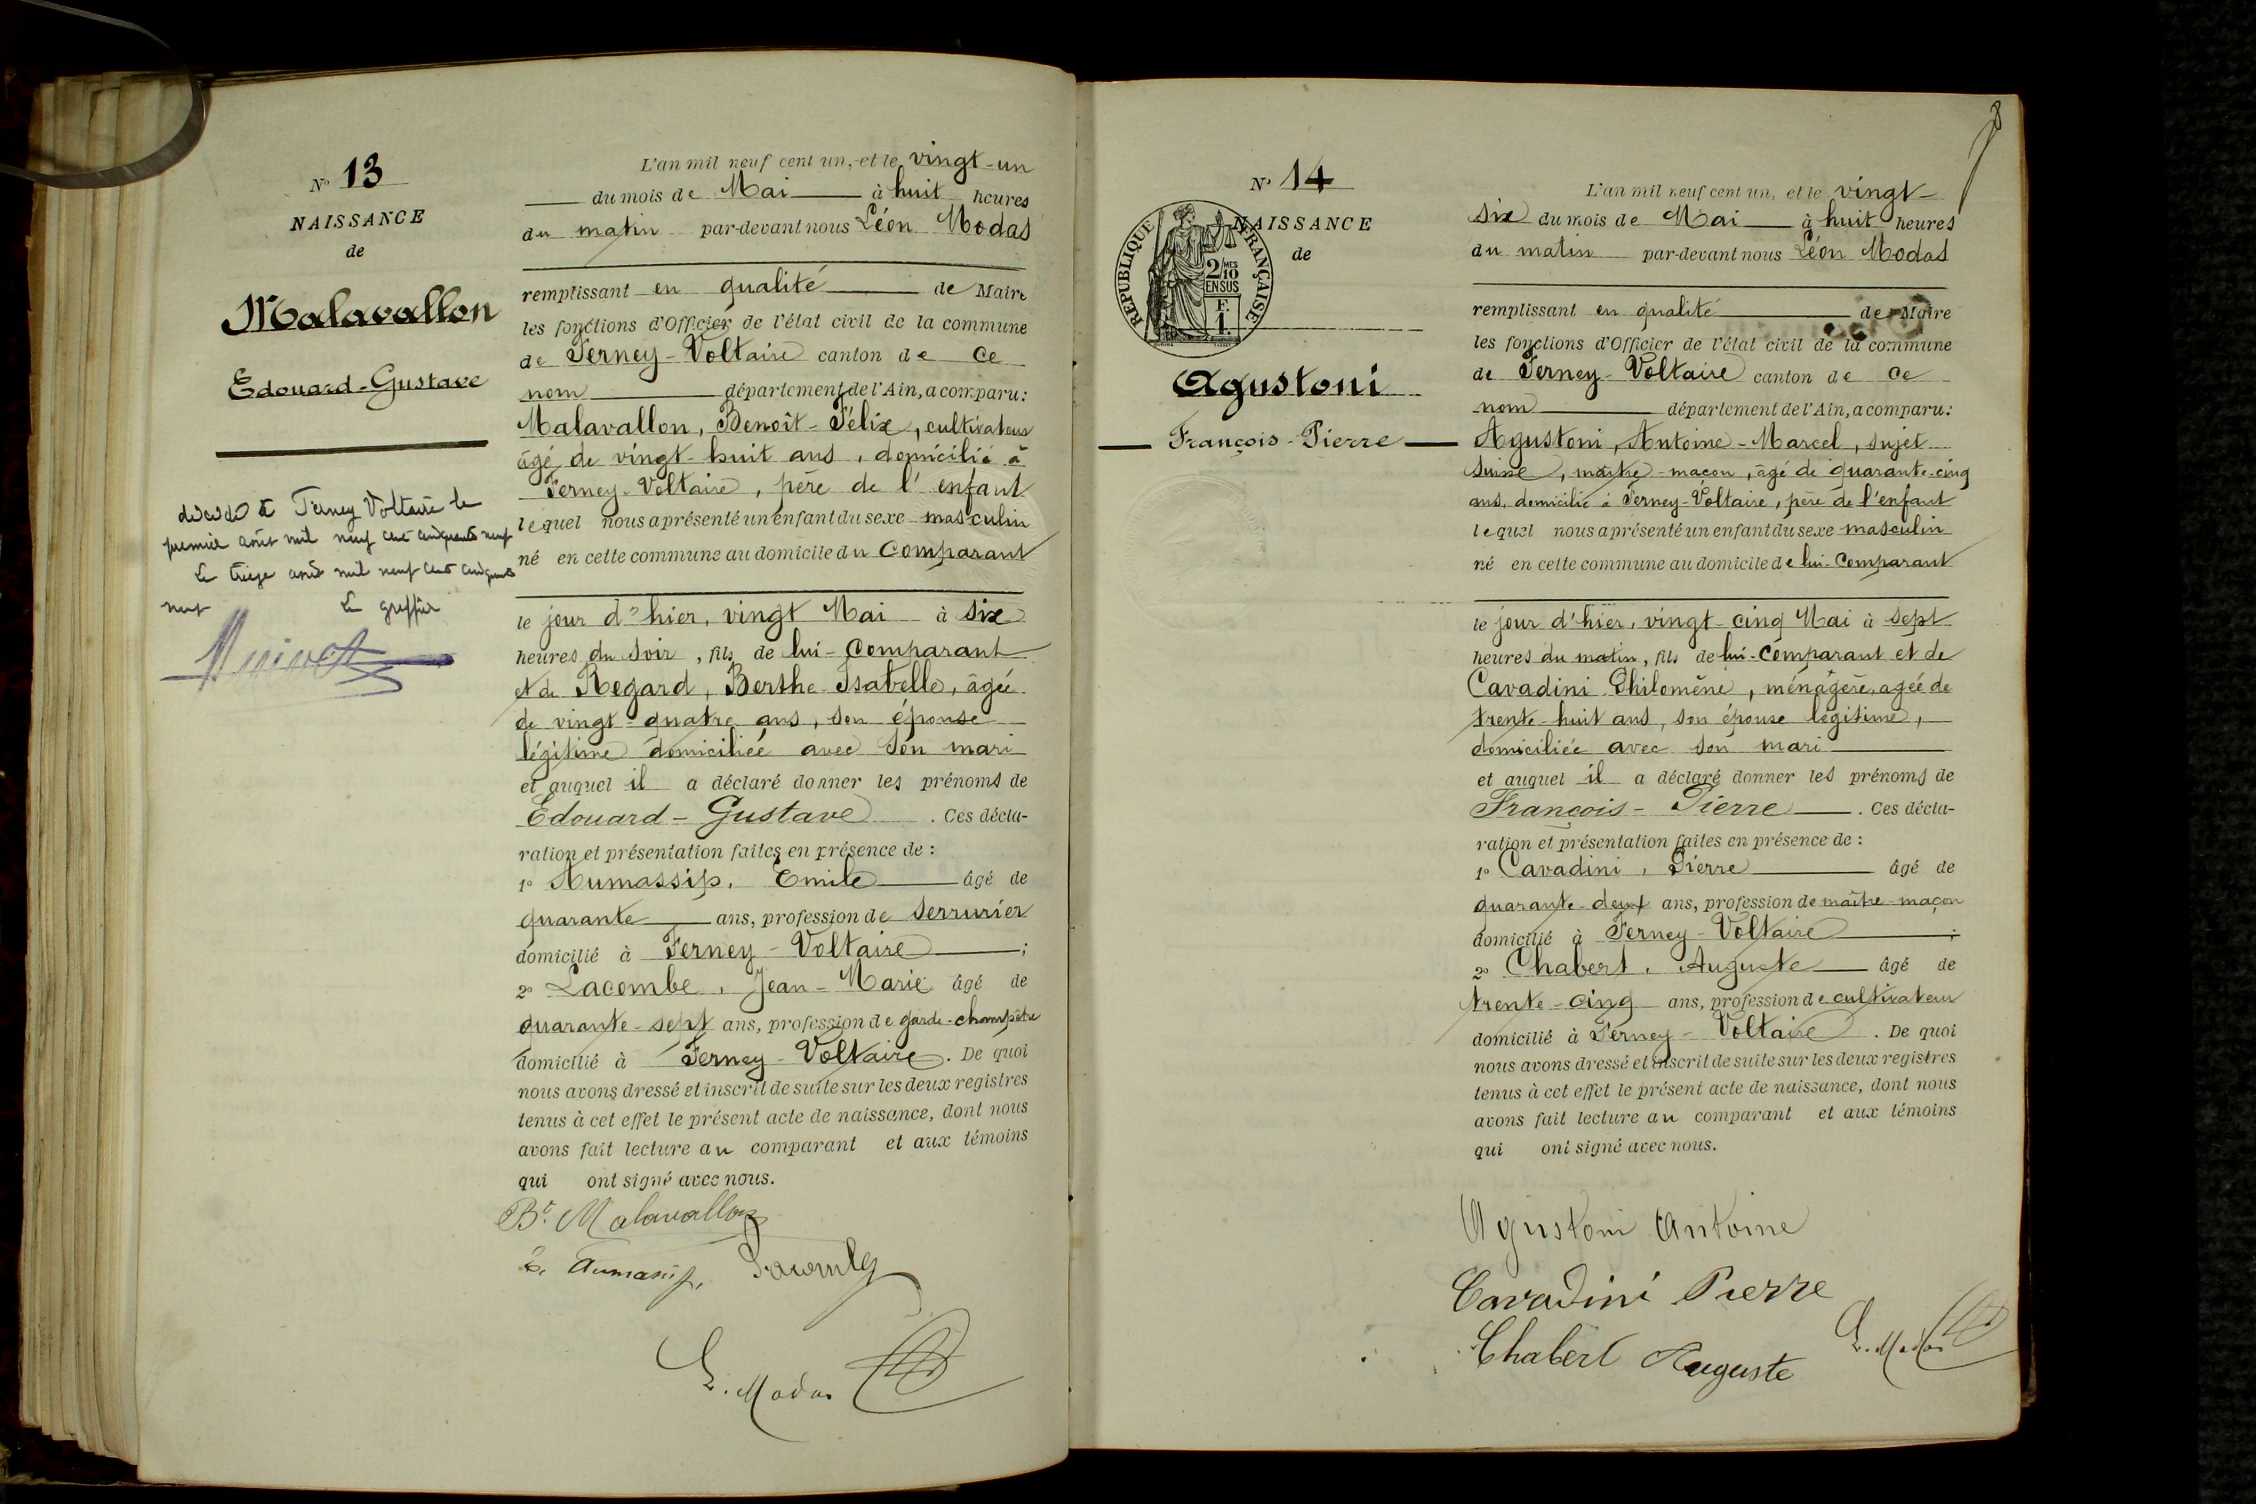 N° 13
NAISSANCE
de
Malavallon
Edouard-Gustave
décédé à Ferney Voltaire le
premier août mil neuf cent cinquante neuf
Le treize août mil neuf cent cinquante
neuf Le greffier
L'an mil neuf cent un, et le vingt-un
du mois de Mai à huit heures
du matin par-devant nous Léon Modas
remplissant en qualité de Maire
les fonctions d'Officier de l'état civil de la commune
de Ferney-Voltaire canton de ce
nom département de l'Ain, a comparu:
Malavallon, Benoît-Félix, cultivateur
âgé de vingt-huit ans, domicilié à
Ferney-Voltaire, père de l'enfant
lequel nous a présenté un enfant du sexe masculin
né en cette commune au domicile du Comparant
le jour d'hier, vingt Mai à six
heures du soir, fils de lui-Comparant
et de Regard, Berthe Isabelle, âgée
de vingt-quatre ans, son épouse
légitime domiciliée avec son mari
et auquel il a déclaré donner les prénoms de
Edouard-Gustave. Ces décla-
ration et présentation faites en présence de:
1° Aumassip, Emile âgé de
quarante ans, profession de serrurier
domicilié à Ferney-Voltaire;
2° Lacombe, Jean-Marie âgé de
quarante-sept ans, profession de garde-champêtre
domicilié à Ferney-Voltaire. De quoi
nous avons dressé et inscrit de suite sur les deux registres
tenus à cet effet le présent acte de naissance, dont nous
avons fait lecture au comparant et aux témoins
qui ont signé avec nous.
Bt Malavallon
E. Aumassip. Lacombe
L. Modas
8
N° 14
NAISSANCE
de
RÉPUBLIQUE FRANÇAISE
2/10 MES
EN SUS
F.
1.
Agustoni
François-Pierre
L'an mil neuf cent un, et le vingt-
six du mois de Mai à huit heures
du matin par-devant nous Léon Modas
remplissant en qualité de Maire
les fonctions d'Officier de l'état civil de la commune
de Ferney-Voltaire canton de ce
nom département de l'Ain, a comparu:
Agustoni, Antoine-Marcel, sujet
suisse, maître-maçon, âgé de quarante-cinq
ans, domicilié à Ferney-Voltaire, père de l'enfant
lequel nous a présenté un enfant du sexe masculin
né en cette commune au domicile de lui-Comparant
le jour d'hier, vingt-cinq Mai à sept
heures du matin, fils de lui-Comparant et de
Cavadini Philomène, ménagère, agée de
trente-huit ans, son épouse légitime,
domiciliée avec son mari
et auquel il a déclaré donner les prénoms de
François-Pierre. Ces décla-
ration et présentation faites en présence de:
1° Cavadini, Pierre âgé de
quarante-deux ans, profession de maître-maçon
domicilié à Ferney-Voltaire;
2° Chabert, Auguste âgé de
trente-cinq ans, profession de cultivateur
domicilié à Ferney-Voltaire. De quoi
nous avons dressé et inscrit de suite sur les deux registres
tenus à cet effet le présent acte de naissance, dont nous
avons fait lecture au comparant et aux témoins
qui ont signé avec nous.
Agustoni Antoine
Cavadini Pierre
Chabert Auguste L. Modas